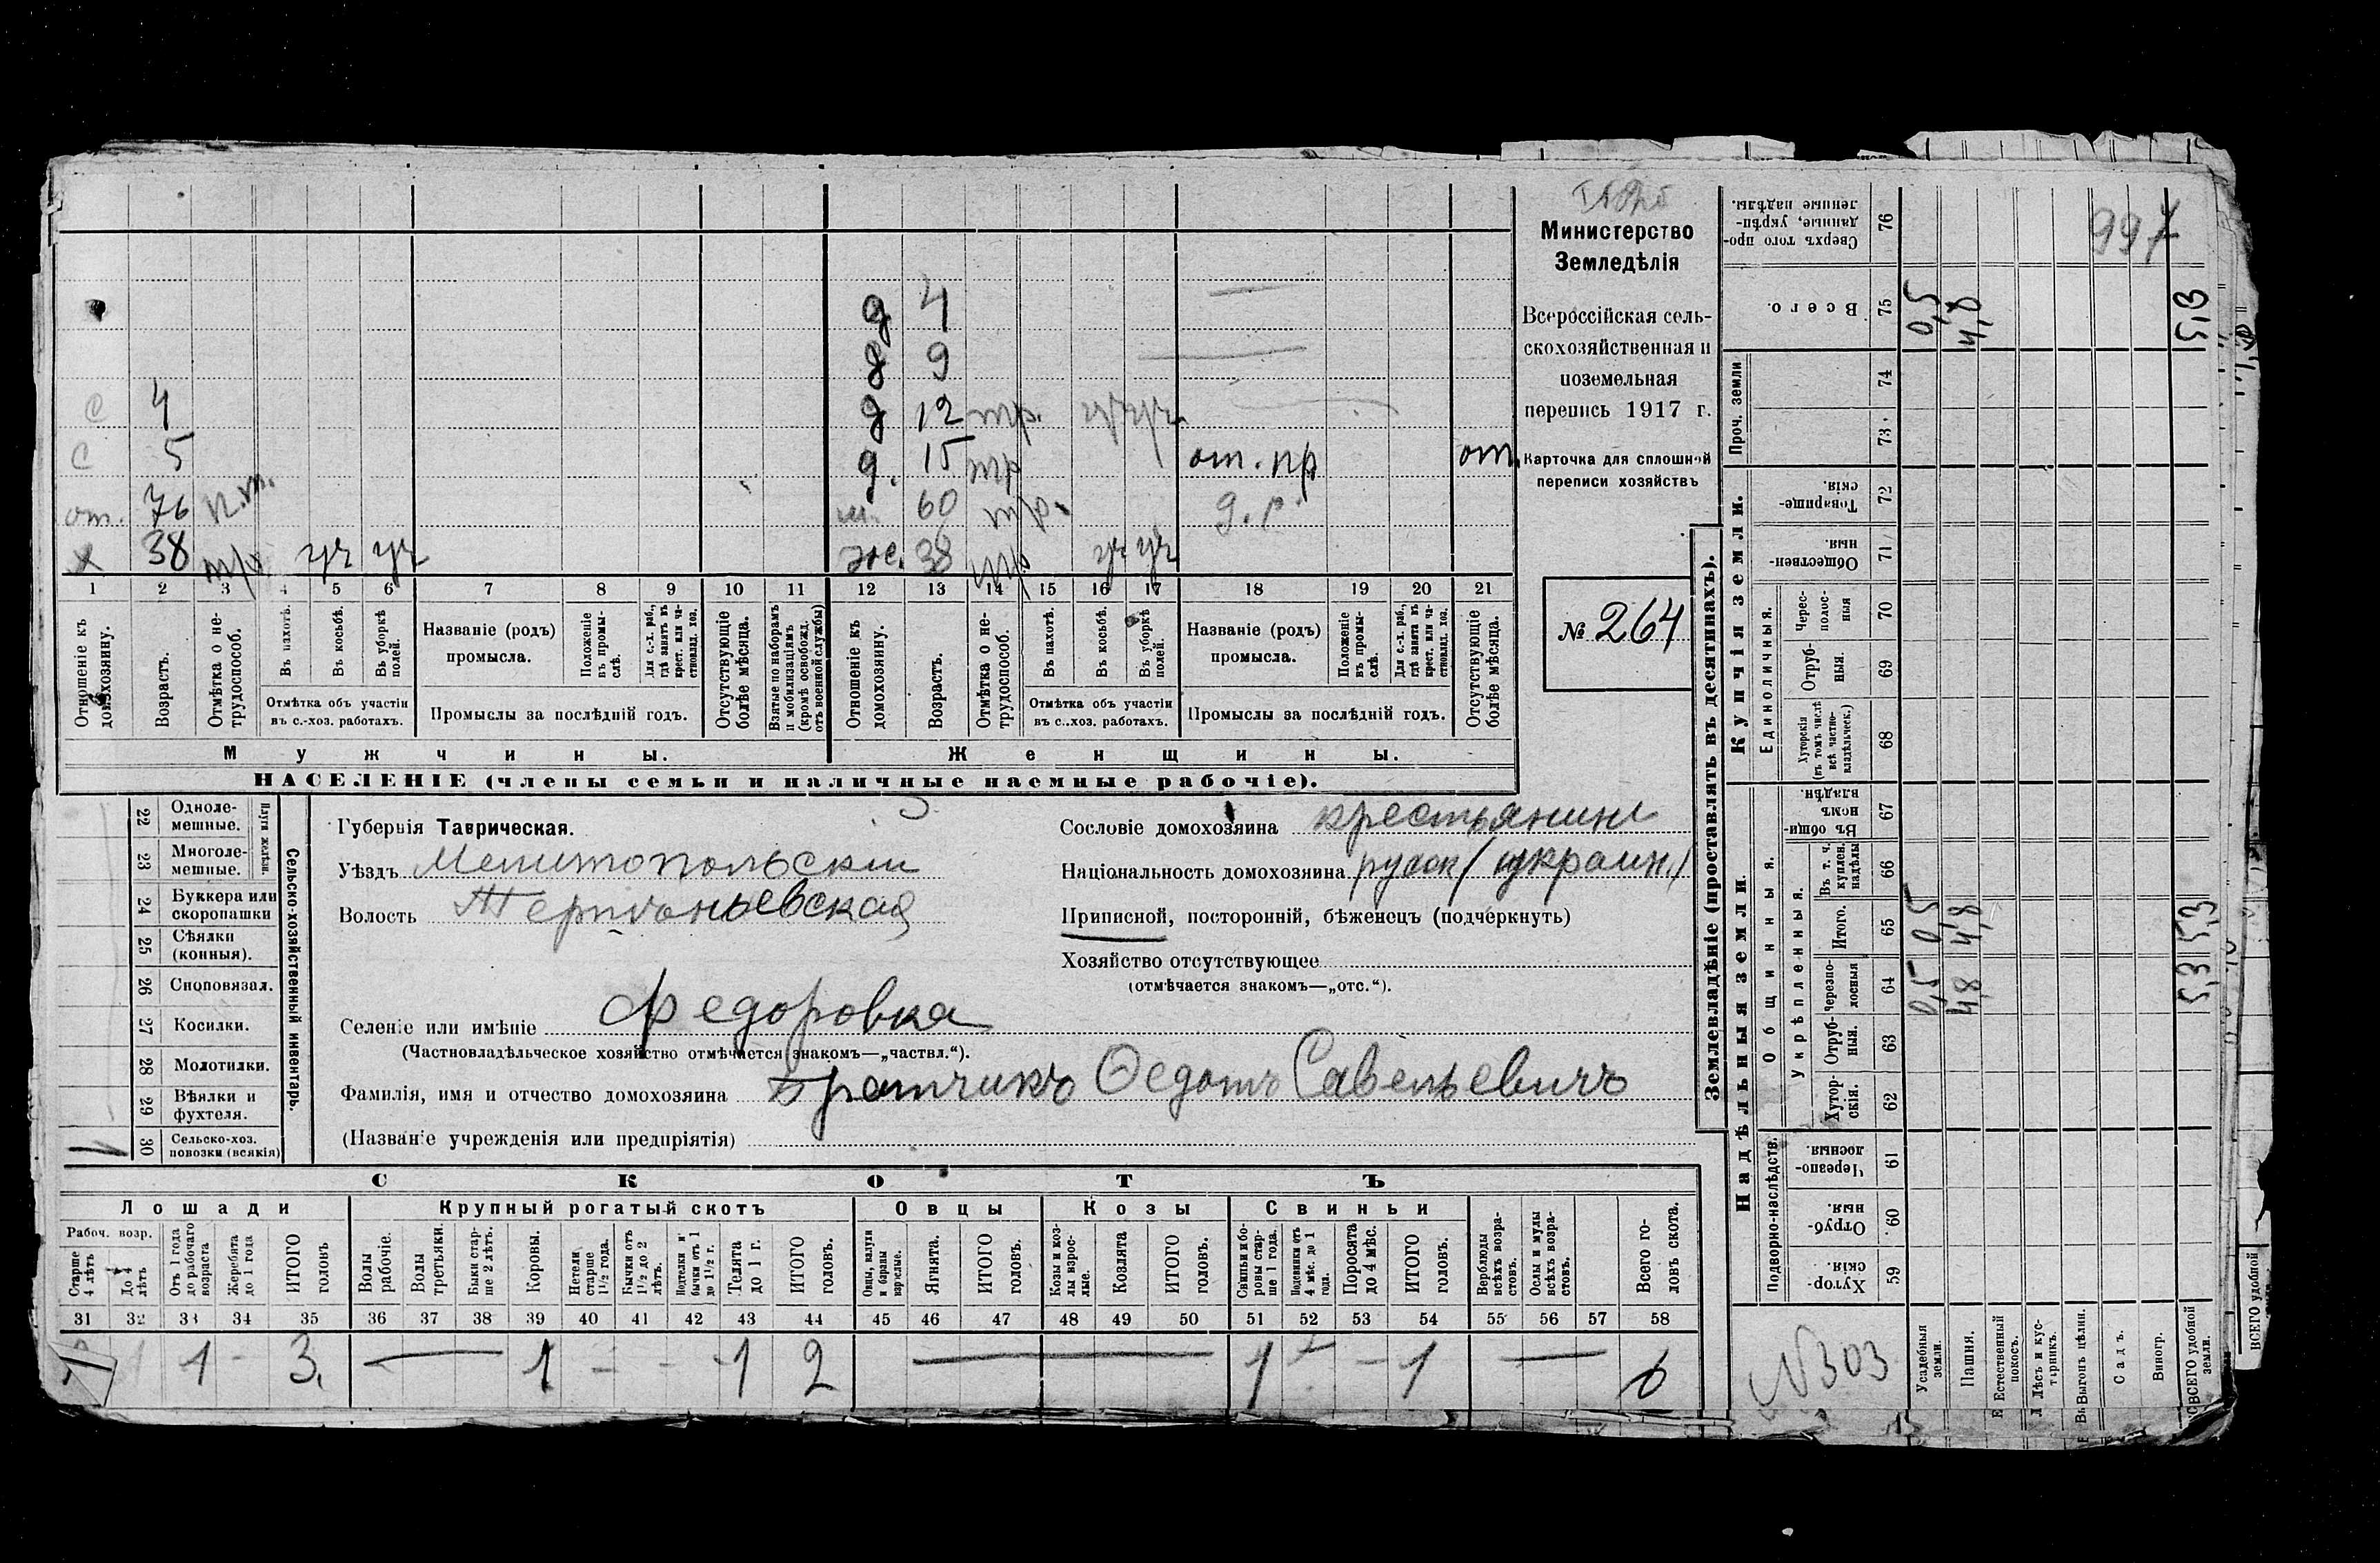 Министерство
Земледѣлія
Всероссійская сель-
скохозяйственная и
поземельная
перепись 1917 г.
Карточка для сплошной
переписи хозяйствъ
№ 264
д 4
д 9
с 4 д 12 тр.
с 5 д. 15 тр от. пр от.
от. 76 п.т. м. 60 тр. д. р.
х 38 тр уч уч же. 38 тр уч уч
1 2 3 4 5 6 7 8 9 10 11 12 13 14 15 16 17 18 19 20 21
Отношеніе къ домохозяину.
Возрастъ.
Отмѣтка о не-
трудоспособ.
Въ пахотѣ.
Въ косьбѣ.
Въ уборкѣ полей.
Отмѣтка объ участіи
въ с.-хоз. работахъ.
Названіе (родъ)
промысла.
Положеніе въ промы-
слѣ.
Для с.-х. раб., гдѣ занятъ въ крест. или ча-
стновлад. хоз.
Промыслы за послѣдній годъ.
Отсутствующіе болѣе мѣсяца.
Взятые по наборамъ и мобилизаціямъ (кромѣ освобожд. отъ военной службы)
Отношеніе къ домохозяину.
Возрастъ.
Отмѣтка о не-
трудоспособ.
Въ пахотѣ.
Въ косьбѣ.
Въ уборкѣ полей.
Отмѣтка объ участіи
въ с..хоз. работахъ.
Названіе (родъ)
промысла.
Положеніе въ промы-
слѣ.
Для с.-х. раб., гдѣ занята въ крест. или ча-
стновлад. хоз.
Промыслы за послѣдній годъ.
Отсутствующіе болѣе мѣсяца.
Мужчины.
Женщины.
НАСЕЛЕНІЕ (члены семьи и наличные наемные рабочіе).
Сельско-хозяйственный инвентарь.
Плуги желѣз.
22 Одноле-
мешные.
23 Многоле-
мешные.
24 Буккера или
скоропашки
25 Сѣялки
(конныя).
26 Сноповязал.
27 Косилки.
28 Молотилки.
29 Вѣялки и
фухтеля.
1 30 Сельско-хоз.
повозки (всякія)
Губернія Таврическая.
Уѣздъ Мелитопольскій
Волость Терпѣньевская
Сословіе домохозяина крестьянинъ
Національность домохозяина русск (украин.)
Приписной, посторонній, бѣженецъ (подчеркнуть)
Хозяйство отсутствующее
(отмѣчается знакомъ—„отс.“).
Селеніе или имѣніе Федоровка
(Частновладѣльческое хозяйство отмѣчается знакомъ—„частвл.“).
Фамилія, имя и отчество домохозяина Братчикъ Ѳедотъ Савельевичъ
(Названіе учрежденія или предпріятія)
СКОТЪ
Лошади
Крупный рогатый скотъ
Овцы
Козы
Свиньи
Рабоч. возр.
Старше 4 лѣтъ
До 4 лѣтъ
Отъ 1 года до рабочаго возраста
Жеребята до 1 года
ИТОГО головъ
Волы рабочіе.
Волы третьяки.
Быки стар-
ше 2 лѣтъ.
Коровы.
Нетели старше 1½ года.
Бычки отъ 1½ до 2 лѣтъ.
Подтелки и бычки отъ 1 до 1½ г.
Телята до 1 г.
ИТОГО головъ.
Овцы, валухи и бараны взрослые.
Ягнята.
ИТОГО головъ.
Козы и коз-
лы взрос-
лые.
Козлята
ИТОГО головъ.
Свиньи и бо-
ровы стар-
ше 1 года.
Подсвинки отъ 4 мѣс. до 1 года.
Поросята до 4 мѣс.
ИТОГО головъ.
Верблюды всѣхъ возра-
стовъ.
Ослы и мулы всѣхъ возра-
стовъ.
Всего го-
ловъ скота.
31 32 33 34 35 36 37 38 39 40 41 42 43 44 45 46 47 48 49 50 51 52 53 54 55 56 57 58
1 - 3. — 1 - - 1 2 — 1 - 1 — 6
Землевладѣніе (проставлять въ десятинахъ).
Надѣльныя земли
Купчія земли.
Подворно-наслѣдств.
Общинныя.
Укрѣпленныя.
Единоличныя.
Проч. земли
Сверхъ того про-
данные, укрѣп-
ленные надѣлы. 76
Всего. 75
74
73
Товарище-
скія. 72
Обществен-
ныя. 71
Черес-
полос-
ныя 70
Отруб-
ныя. 69
Хуторскія
(въ томъ числѣ
всѣ частно-
владѣльческ.) 68
Въ общи
номъ
владѣн. 67
Въ т. ч.
куплен.
надѣлы 66
Итого. 65
Черезпо-
лосныя 64
Отруб-
ныя. 63
Хутор-
скія. 62
Черезпо-
лосныя. 61
Отруб-
ныя. 60
Хутор-
скія. 59
Усадебныя
земли. 0,5 0,5 0,5
Пашня. 4,8 4,8 4,8
Естественный
покосъ.
Лѣсъ и кус-
тарникъ.
Выгонъ цѣлин.
Садъ.
Виногр.
ВСЕГО удобной
земли. 5,3 5,3 5,3
997
№303
ВСЕГО удобной